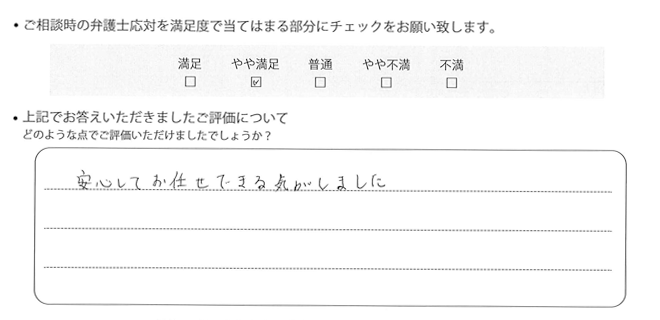 ・ご相談時の弁護士応対を満足度で当てはまる部分にチェックをお願い致します。
満足 やや満足 普通 やや不満 不満
□ ☑ □ □ □
・上記でお答えいただきましたご評価について
どのような点でご評価いただけましたでしょうか？
安心してお任せできる気がしました